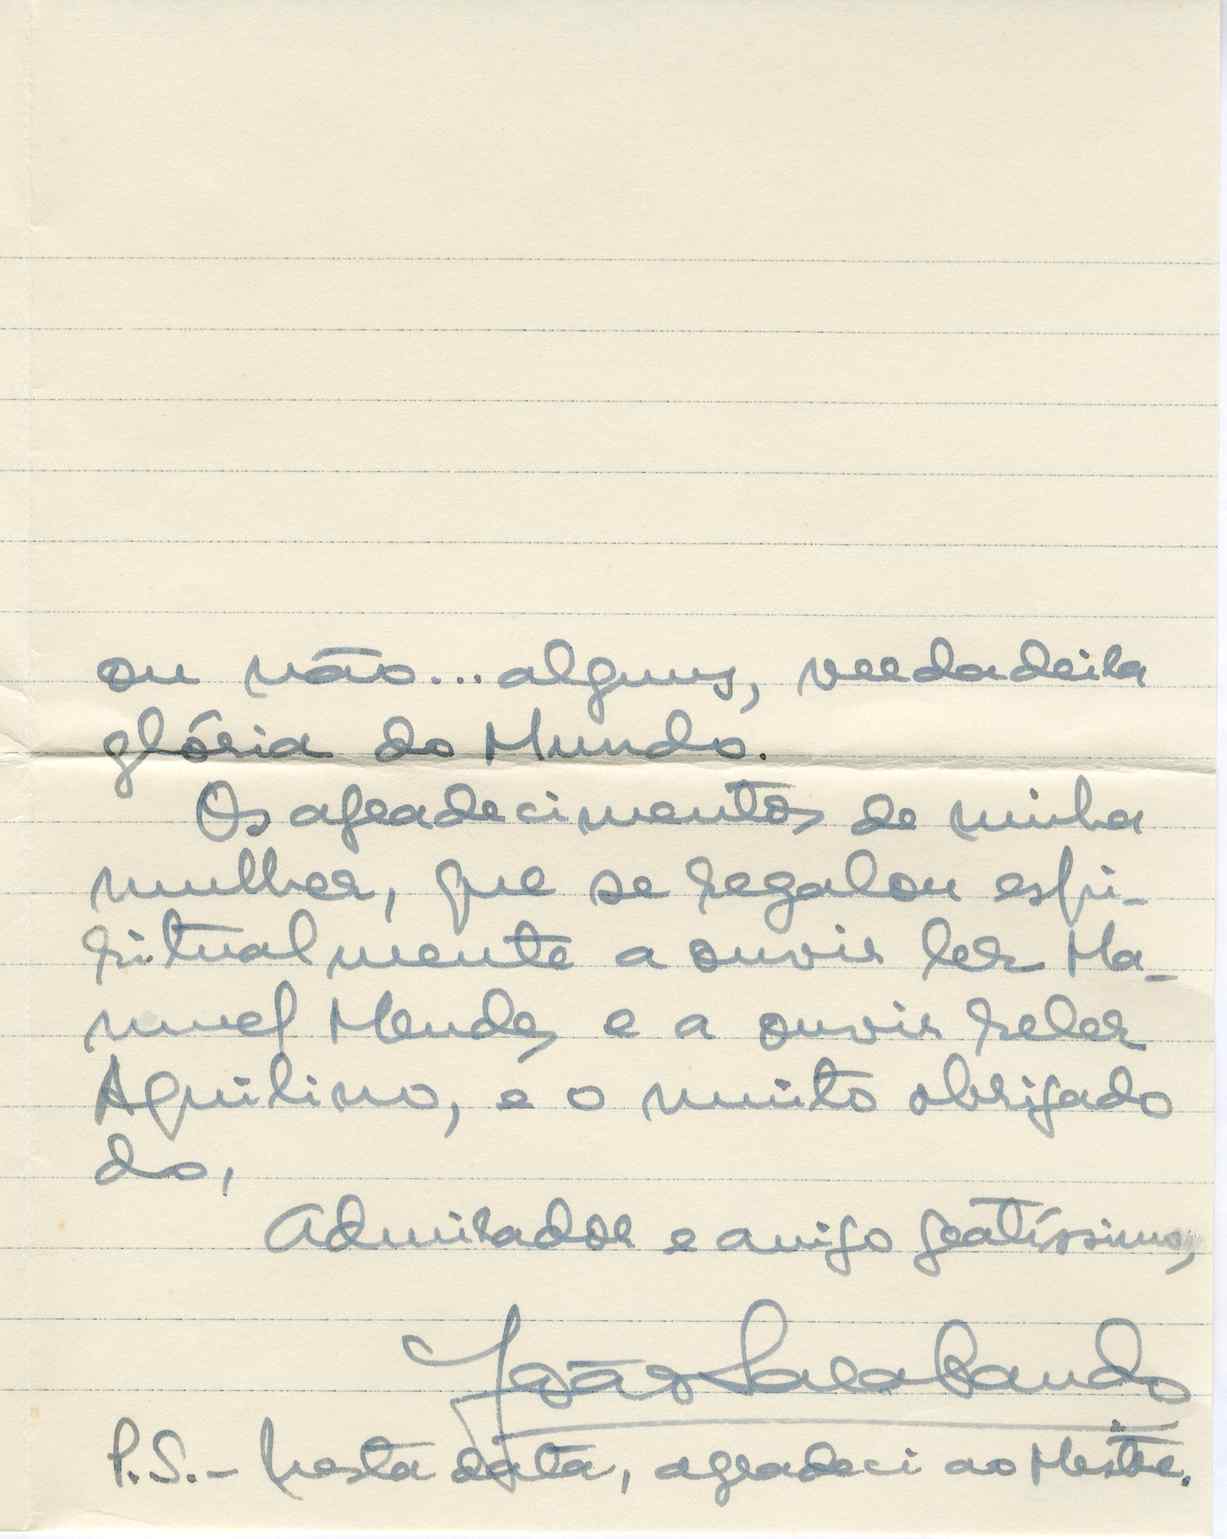 ou não... alguns, verdadeira
glória do Mundo.
Os agradecimentos de minha
mulher, que se regalou espi-
ritualmente a ouvir ler Ma-
nuel Mendes e a ouvir reler
Aquilino, e o muito obrigado
do,
Admirador e amigo gratíssimo,
João Sarabando
P.S. - Nesta data, agradeci ao Mestre.